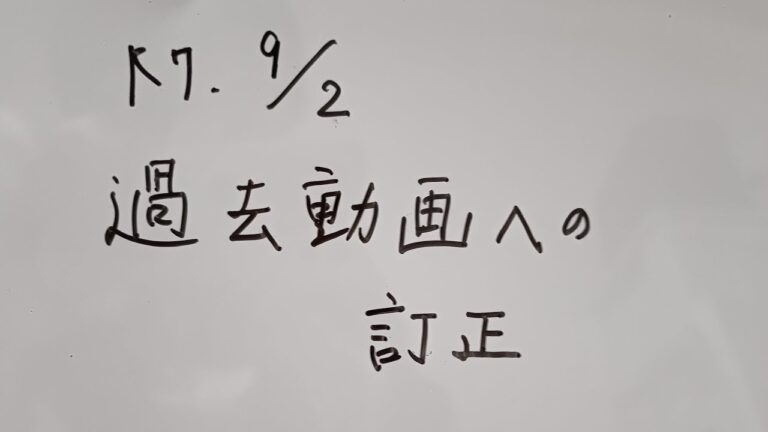 R7. 9/2
過去動画への
訂正